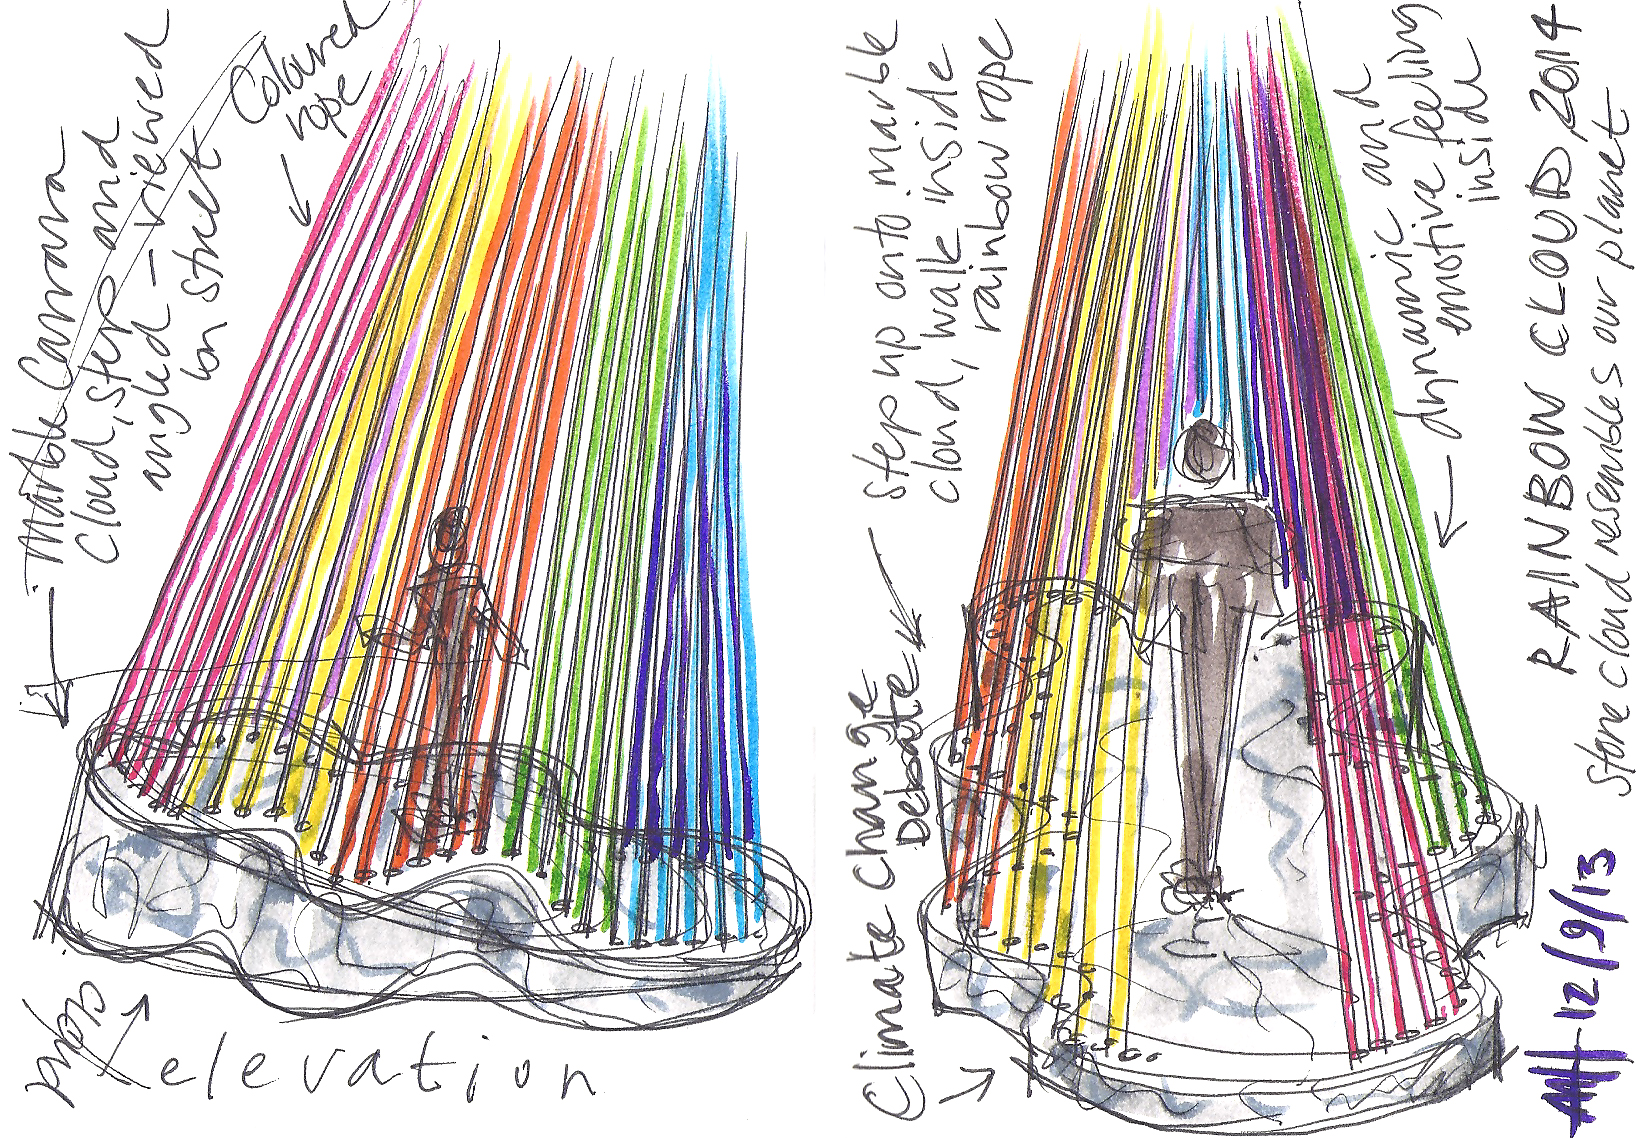 Marble Carrara
Cloud, step and
angled – viewed
on street
Coloured
rope
elevation
Step up onto marble
cloud, walk inside
rainbow rope
Climate Change
Debate
dynamic and
emotive feeling
inside
RAINBOW CLOUD, 2014
Stone cloud resembles our planet
12/9/13